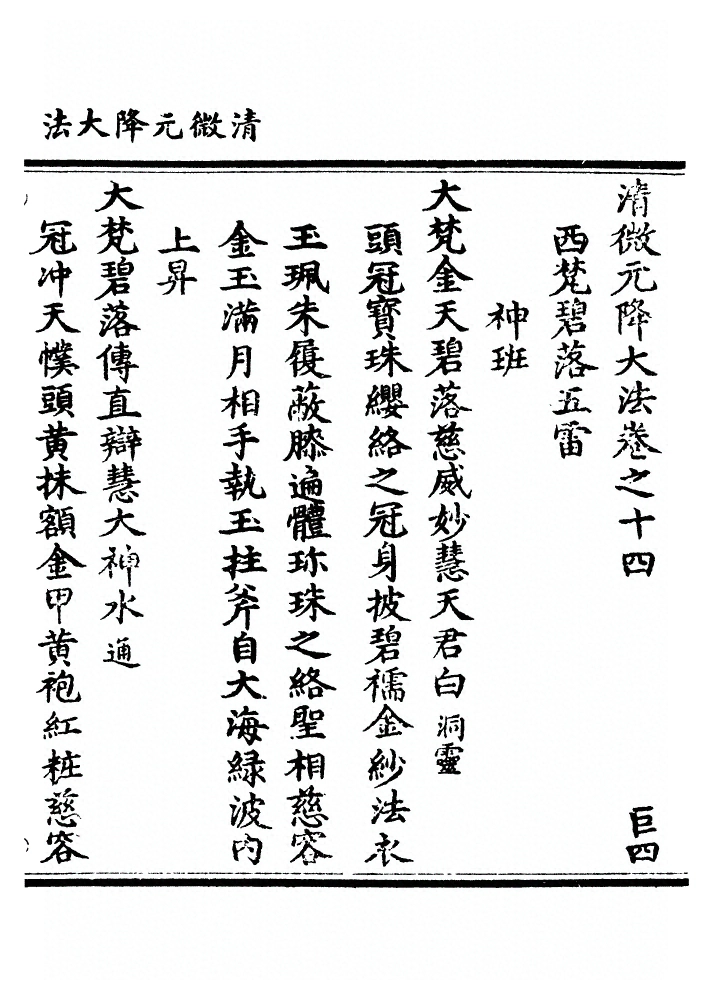 清微元降大法
清微元降大法卷之十四 巨四
西梵碧落五雷
神班
大梵金天碧落慈威妙慧天君白洞靈
頭冠寶珠纓絡之冠身披碧襦金紗法衣
玉珮朱履蔽膝遍體珎珠之絡聖相慈容
金玉滿月相手執玉拄斧自大海緑波内
上昇
大梵碧落傳直辯慧大神水通
冠冲天幞頭黄抹額金甲黄袍紅粧慈容